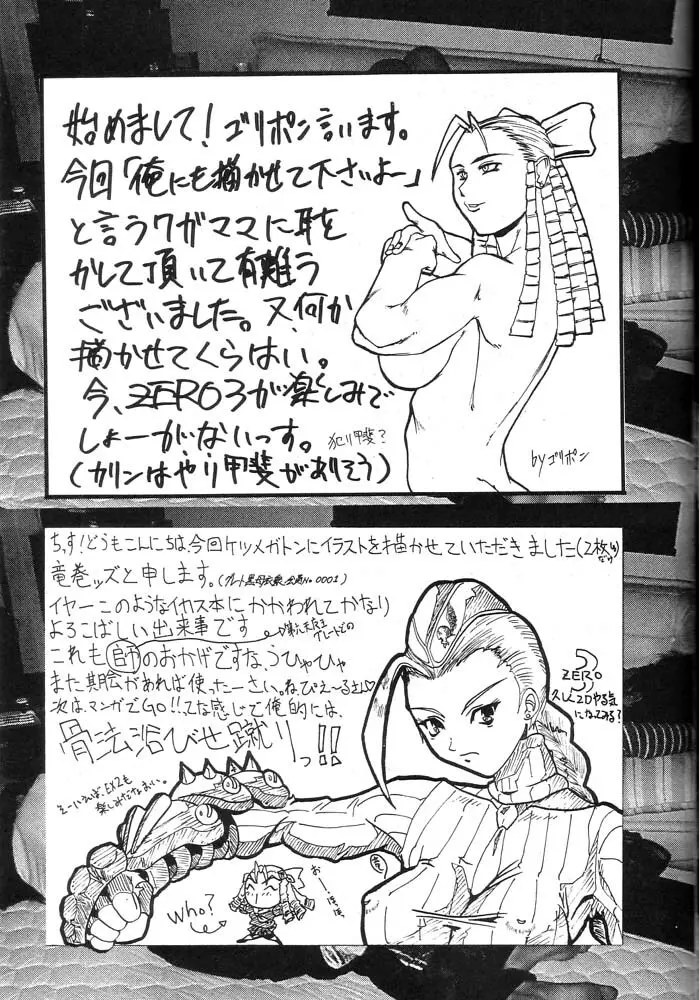 始めまして！ゴリポン言います。
今回「俺にも描かせて下さいよー」
と言うワガママに耳を
かして頂いて有難う
ございました。又、何か
描かせてくらはい。
今、ZERO3が楽しみで
しょーがないっす。
（カリンはやり甲斐がありそう）
犯り甲斐？
byゴリポン
ちっす！どうもこんにちは、今回ケツメガトンにイラストを描かせていただきました（2枚
竜巻ッズと申します。
イヤーこのようなイカス本にかかわれてかなり
よろこばしい出来事です
これも師のおかげですなうひゃひゃ
また期会があれば使ったーさい。ねぴえ〜るさん♡
次は、マンガでGO!!てな感じで俺的には、
骨法浴びせ蹴りっ!!
そーいえば、EX2も
楽しみだなおい。
ZERO3
久しく2Dやる気
になってみる？
Who?
おーっほほ